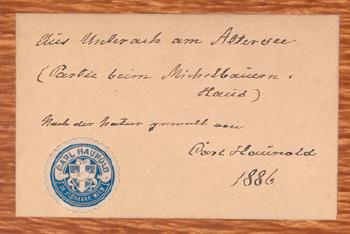 Aus Unterach am Attersee
(Partie beim Michelbauern-
Haus)
Nach der Natur gemalt von
Carl Haunold
1886.
CARL HAUNOLD
WIEN